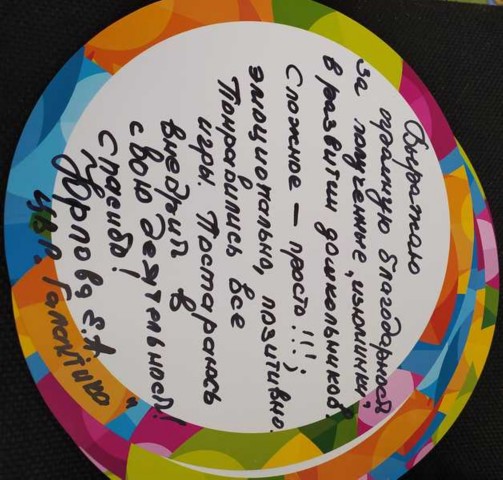 Выражаю
огромную благодарность
за полученные „изюминки“
в развитии дошкольников,
Сложное – просто!!!;
эмоционально, позитивно.
Понравились все
игры. Постараюсь
внедрить в
свою деятельность!
Спасибо!
Е.А